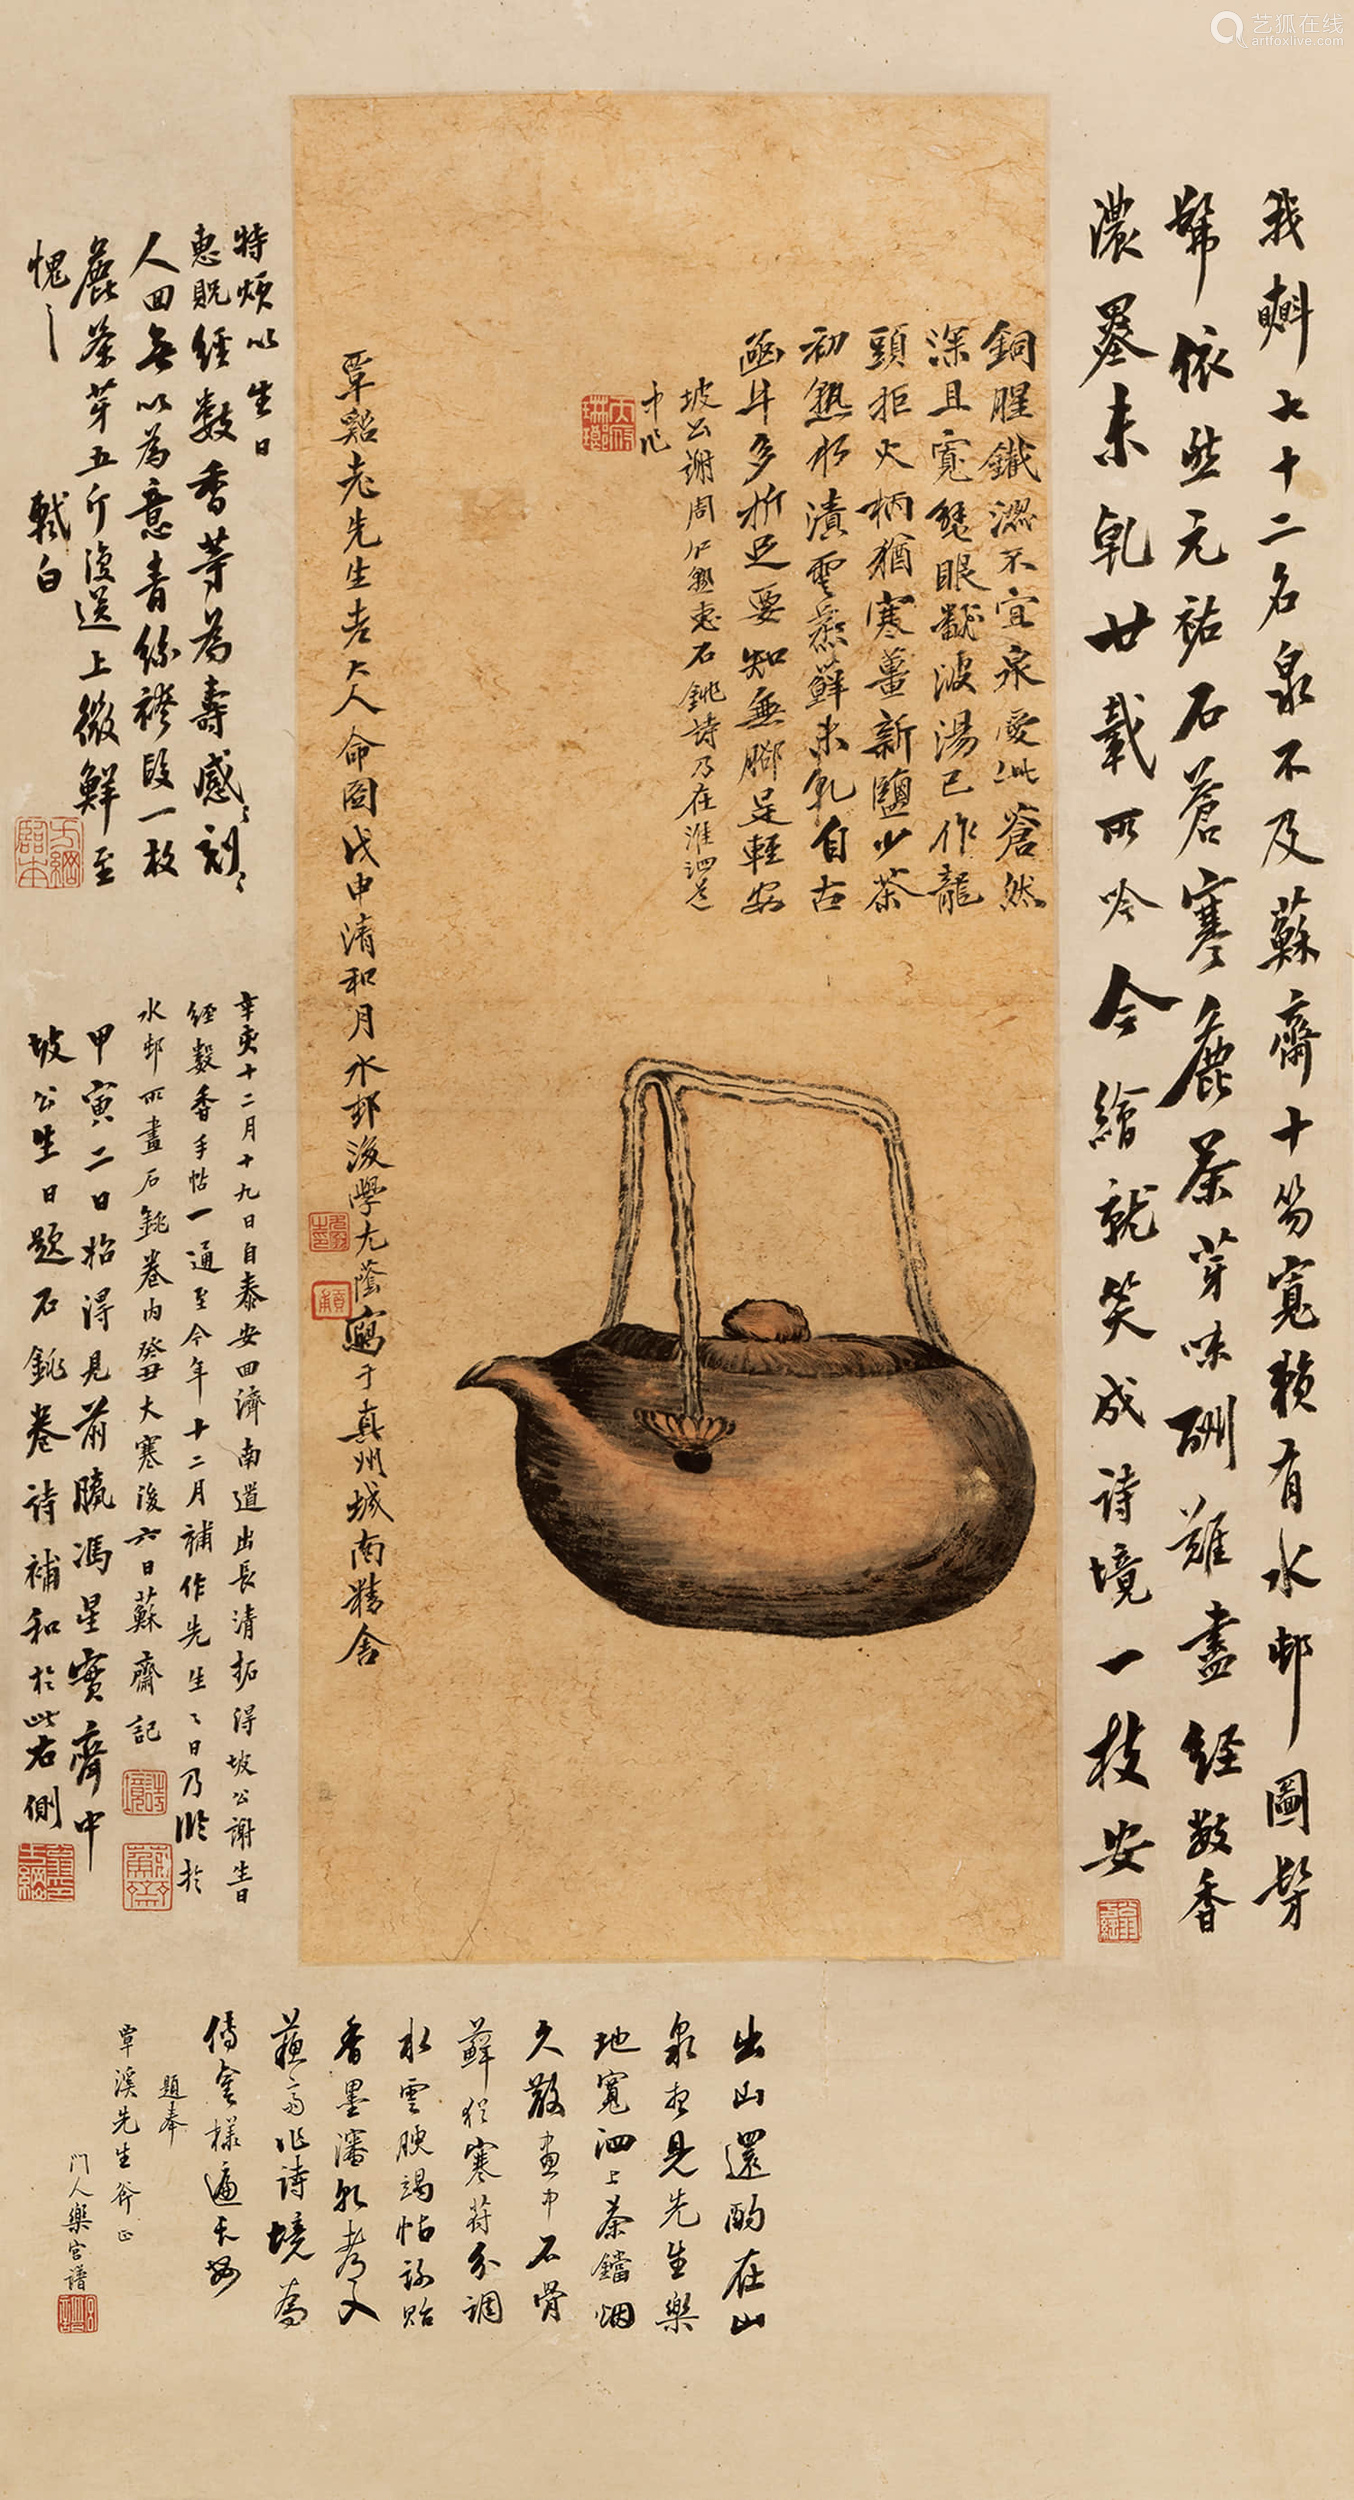 艺狐在线
artfoxlive.com
我斟七十二名泉不及蘇齋十笏寬賴有水邨圖髣
髴依然元祐石蒼寒麁茶芽味酬難盡經數香
濃墨未乾廿載所吟今繪就笑成詩境一枝安
銅腥鐵澀不宜泉愛此蒼然
深且寬蟹眼翻波湯已作龍
頭拒火柄猶寒薑新鹽少茶
初熟水漬雲蒸蘚未乾自古
函牛多折足要知無腳是輕安
坡公謝周仁熟惠石銚詩乃在淮泗道
中作
覃谿老先生老大人命圖戊申清和月水邨後學尤蔭寫于真州城南精舍
特煩以生日
惠貺經數香等為壽感〻刻〻
人回無以為意青絲襻段一枚
麁茶芽五斤復送上微鮮至
愧〻 軾白
辛亥十二月十九日自泰安回濟南道出長清拓得坡公謝生日
經數香手帖一通至今年十二月補作先生〻日乃臨於
水邨所畫石銚卷内癸丑大寒後六日蘇齋記
甲寅二日招得見前臏馮星實齋中
坡公生日題石銚卷詩補和於此右側
出山還酌在山
泉想見先生樂
地寬泗上茶鐺烟
久散畫中石骨
蘚猶寒符分調
水雲腴竭帖詠貽
香墨瀋乾考文
蘇齋作詩境為
傳金樣遍長安
題奉
覃溪先生斧正
門人樂宫譜